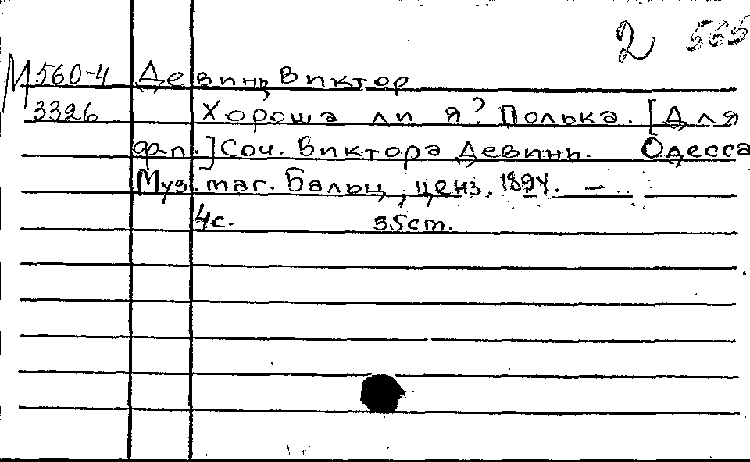 2 565
М560-4 Девинь Виктор
3326 Хороша ли я? Полька. [Для
ф.п.] Соч. Виктора Девинь. Одесса
Муз. маг. Бальц, ценз. 1894. —
4с. 35cm.